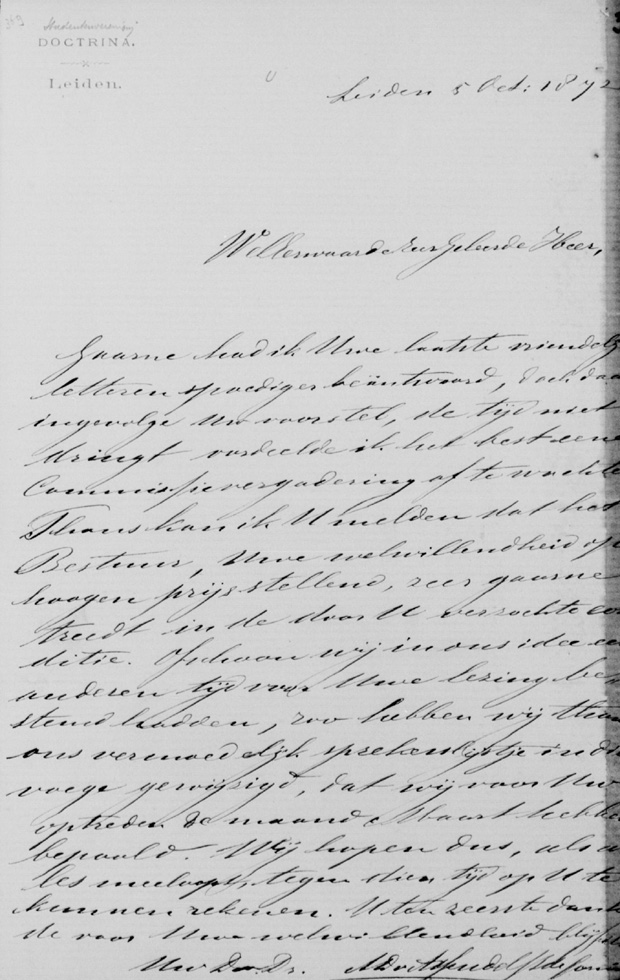 369 Studentenvereenig
DOCTRINA.
Leiden.
Leiden 5 Oct: 1872
WelEerwaarde ZeerGeleerde Heer,
Gaarne had ik Uwe laatste vriendel
letteren spoediger beäntwoord, doch daar
ingevolge Uw voorstel, de tijd niet
dringt oordeelde ik het best eene
Commissievergadering af te wachte
Thans kan ik U melden dat het
Bestuur, Uwe welwillendheid op
hoogen prijs stellend, zeer gaarne
treedt in de door U verzochte con
ditie. Ofschoon wij in ons idee een
anderen tijd voor Uwe lezing be
stemd hadden, zoo hebben wij thans
ons vermoedelijk sprekerlijstje in di
voege gewijzigd, dat wij voor Uw
optreden de maand Maart hebbe
bepaald. Wij hopen dus, als a
les meeloopt, tegen dien tijd op U te
kunnen rekenen. U ten zeerste dank
de voor Uwe welwillendheid blijf
Uw Dw Dr.